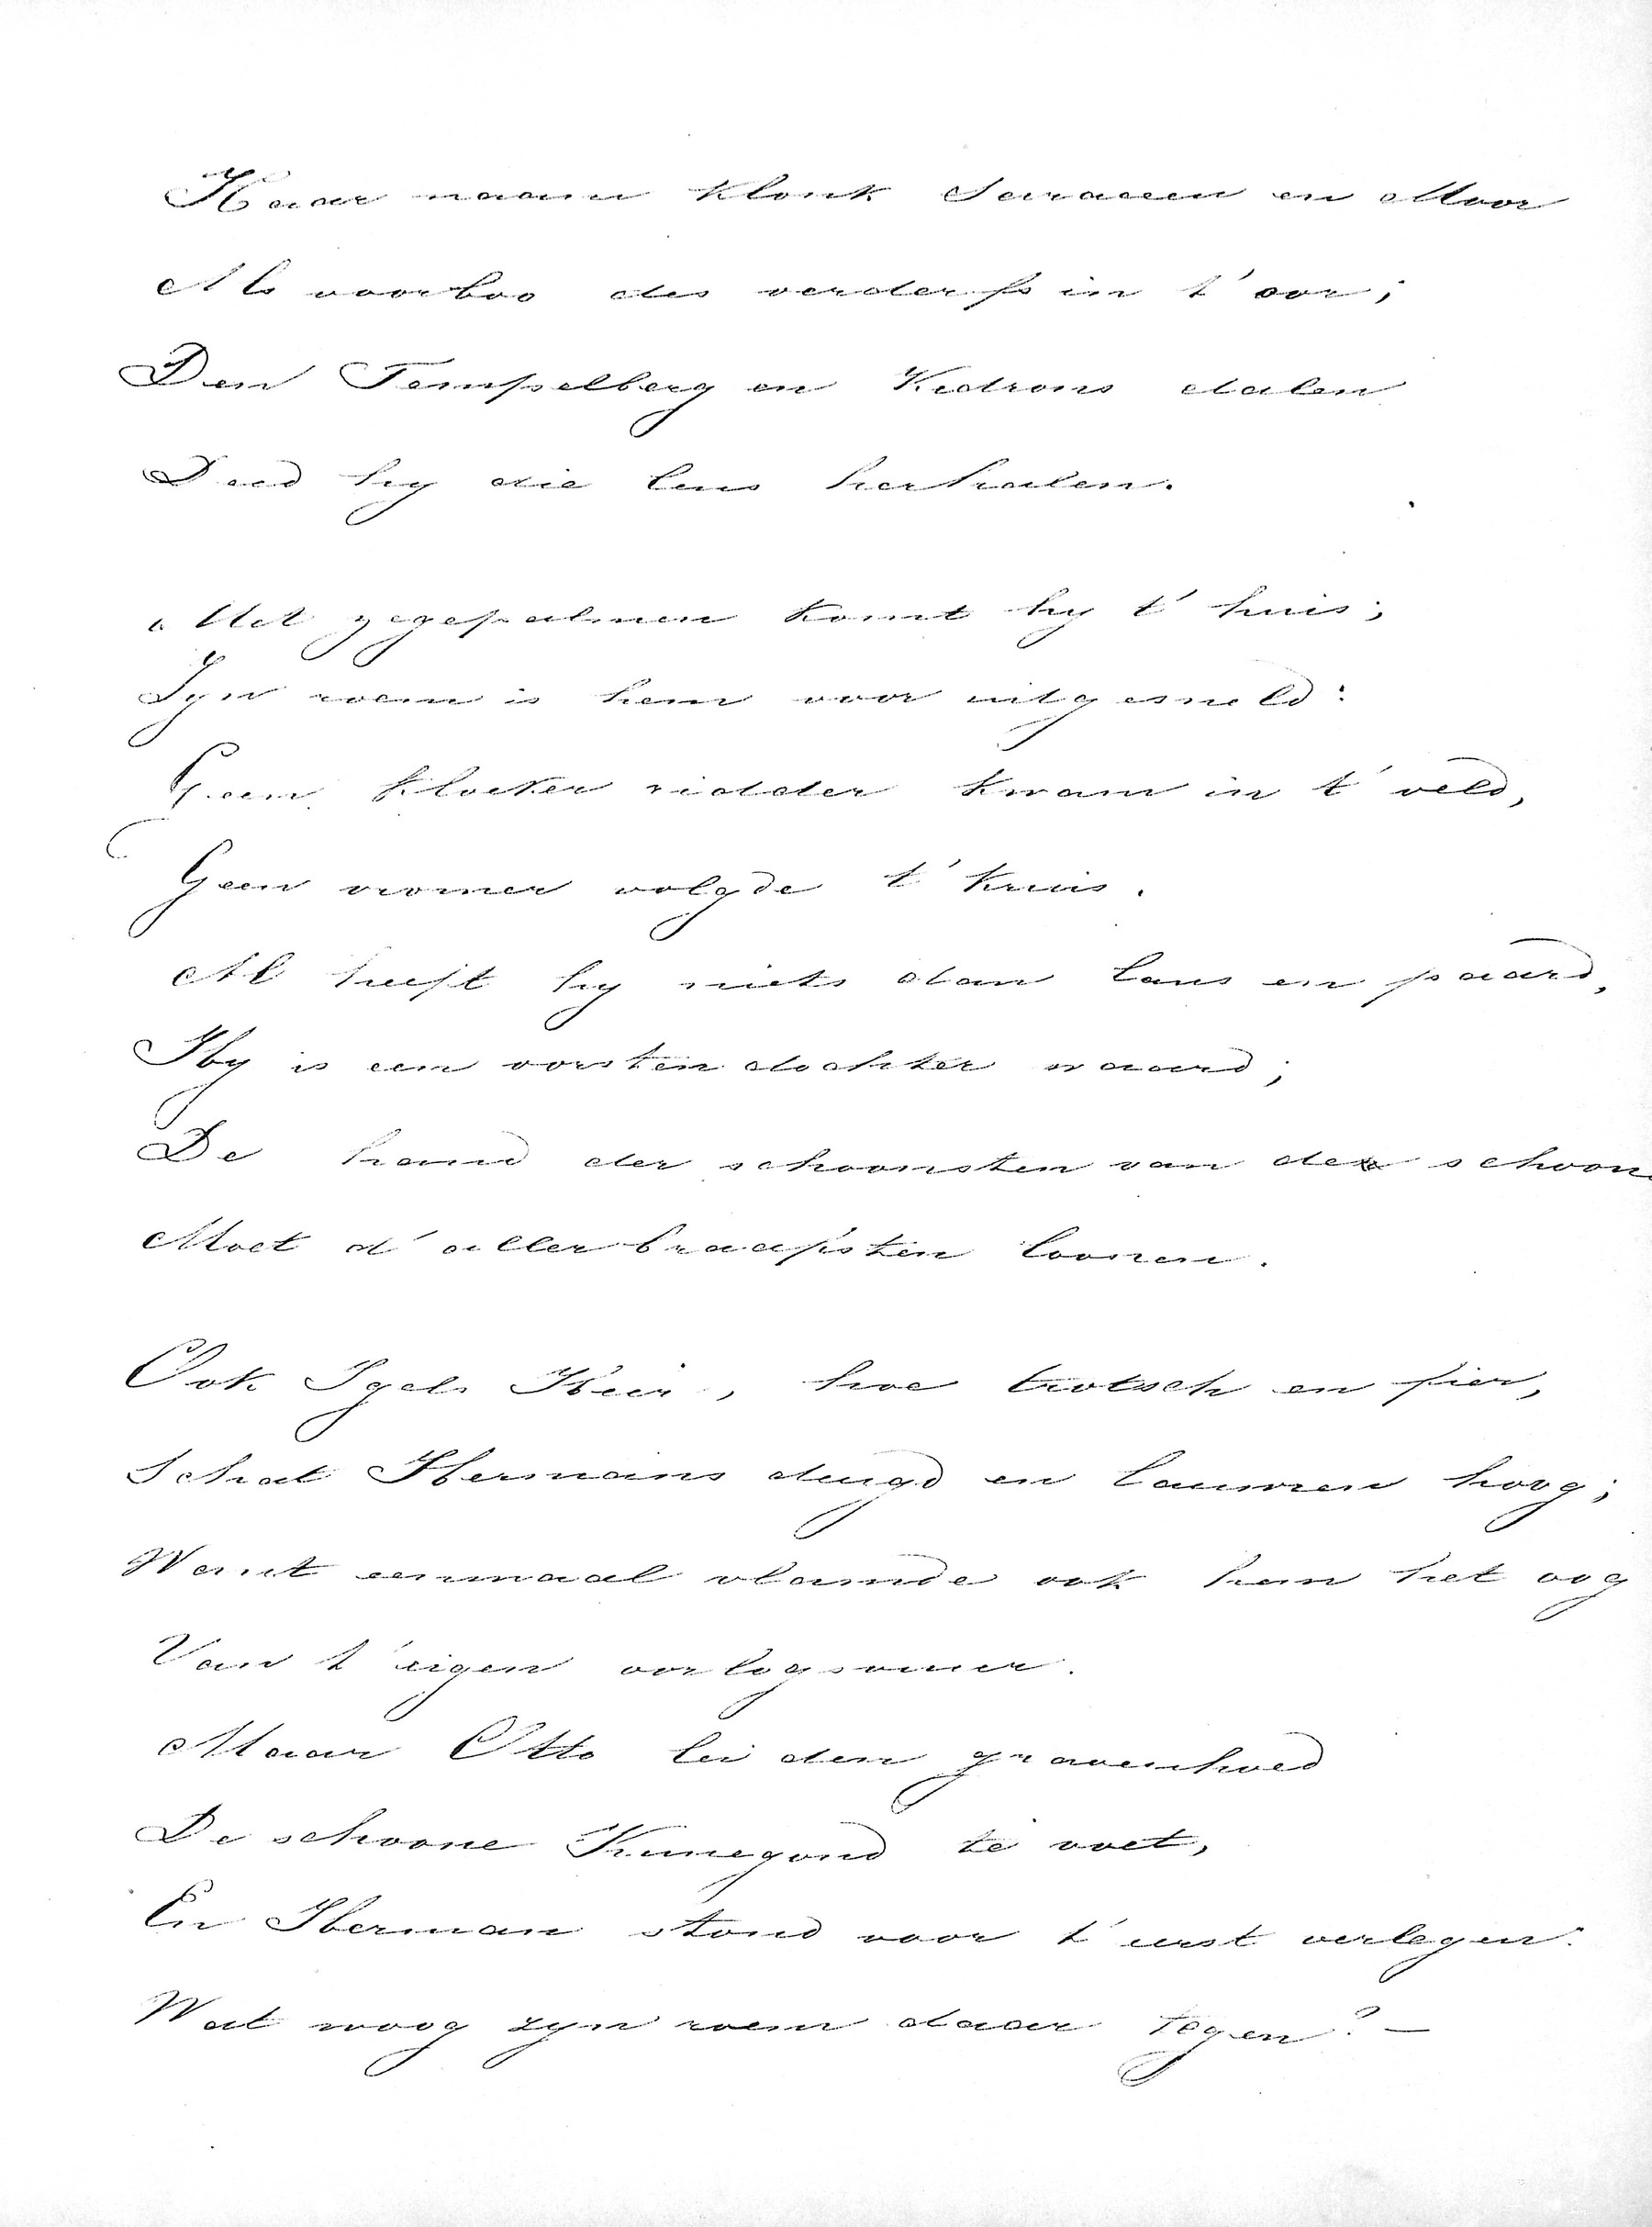 Haar naam klonk Saraceen en Moor
Als voorboo des verderfs in t' oor;
Den Tempelberg en Kedrons dalen
Deed hy die leus herhalen.
Met zegepalmen komt hy t' huis;
Zyn roem is hem voor uitgesneld:
Geen kloeker ridder kwam in t' veld,
Geen vromer volgde t' kruis.
Al heeft hy niets dan lans en paard,
Hy is een vorsten dochter waard;
De hand der schoonsten van der schoon
Moet d' allerbraafsten loonen.
Ook Igels Heir, hoe trotsch en fier,
Schat Hermans deugd en lauwren hoog;
Want eenmaal vlamde ook hem het oog
Van t' eigen oorlogsvuur.
Maar Otto lei den gravenhoed
De schoone Kunegond te voet,
En Herman stond voor t' eerst verlegen:
Wat woog zyn roem daar tegen? —